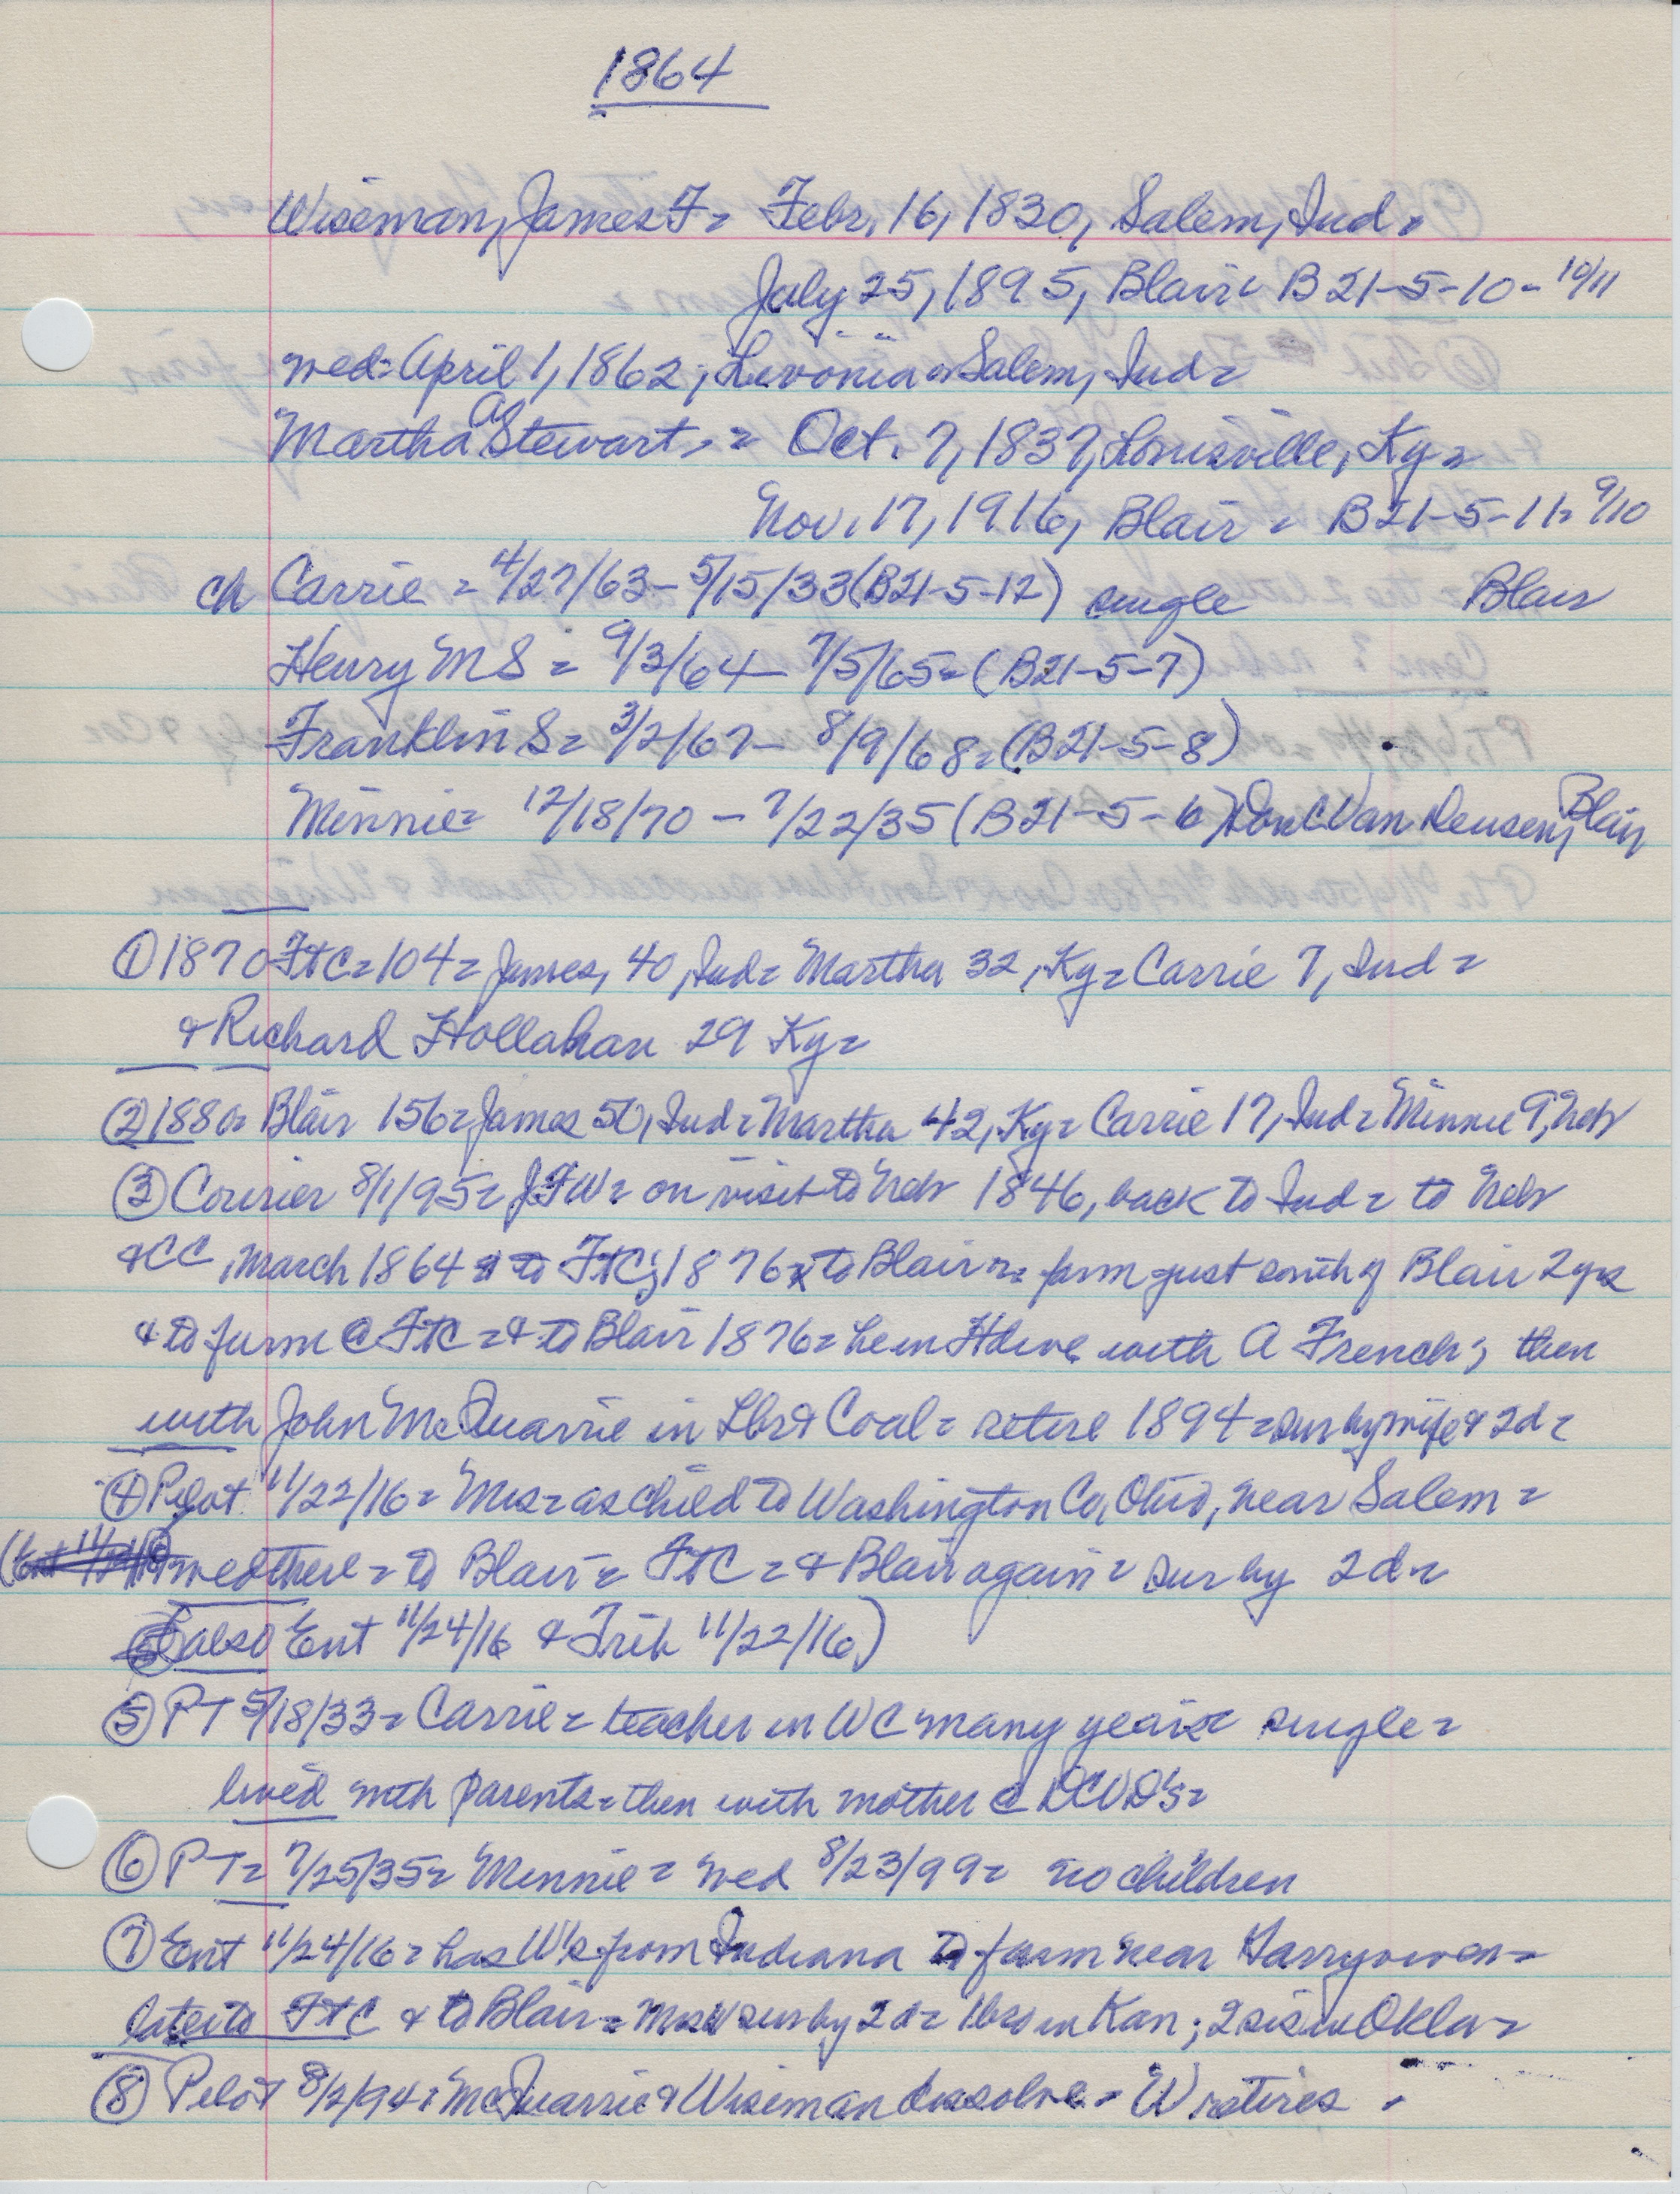 1864
Wiseman, James F = Febr. 16, 1830, Salem, Ind =
July 25, 1895, Blair = B 21-5-10 - 10/11
wed = April 1, 1862; Livonia or Salem, Ind =
Martha A Stewart = Oct. 7, 1837, Louisville, Ky =
Nov. 17, 1916, Blair = B21-5-11 = 9/10
ch Carrie = 4/27/63 - 5/15/33 (B21-5-12) single Blair
Henry M S = 9/3/64 - 7/5/65 = (B21-5-7)
Franklin S = 3/2/67 - 8/9/68 = (B21-5-8)
Minnie = 12/18/70 - 7/22/35 (B21-5-6) Don C Van Deusen, Blair
① 1870 FtC = 104 = James, 40, Ind = Martha 32, Ky = Carrie 7, Ind =
& Richard Hollahan 29 Ky =
② 1880 = Blair 156 = James 50, Ind = Martha 42, Ky = Carrie 17, Ind = Minnie 9, Neb
③ Courier 8/1/95 = JFW = on visit to Neb 1846, back to Ind = to Neb
& CC, March 1864 & to FtC; 1876 to Blair = farm just south of Blair 2 yrs
& to farm @ FtC = & to Blair 1876 = he in Hdwe with A French; then
with John McQuarrie in Lbr & Coal = retire 1894 = sur by wife & 2d =
④ Pilot 11/22/16 = Mrs = as child to Washington Co, Ohio, near Salem =
wed there = to Blair = FtC = & Blair again = sur by 2d =
also Ent 11/24/16 & Trib 11/22/16)
⑤ PT 5/18/33 = Carrie = teacher in WC many years = single =
lived with parents = then with mother @ DCVD's =
⑥ PT = 7/25/35 = Minnie = wed 8/23/99 = no children
⑦ Ent 11/24/16 = has W's from Indiana to farm near Garryowen =
later to FtC & to Blair = Mrs W sur by 2d = 1 bro in Kan; 2 sis in Okla =
⑧ Pilot 8/2/94 = McQuarrie & Wiseman dissolve = W retires =